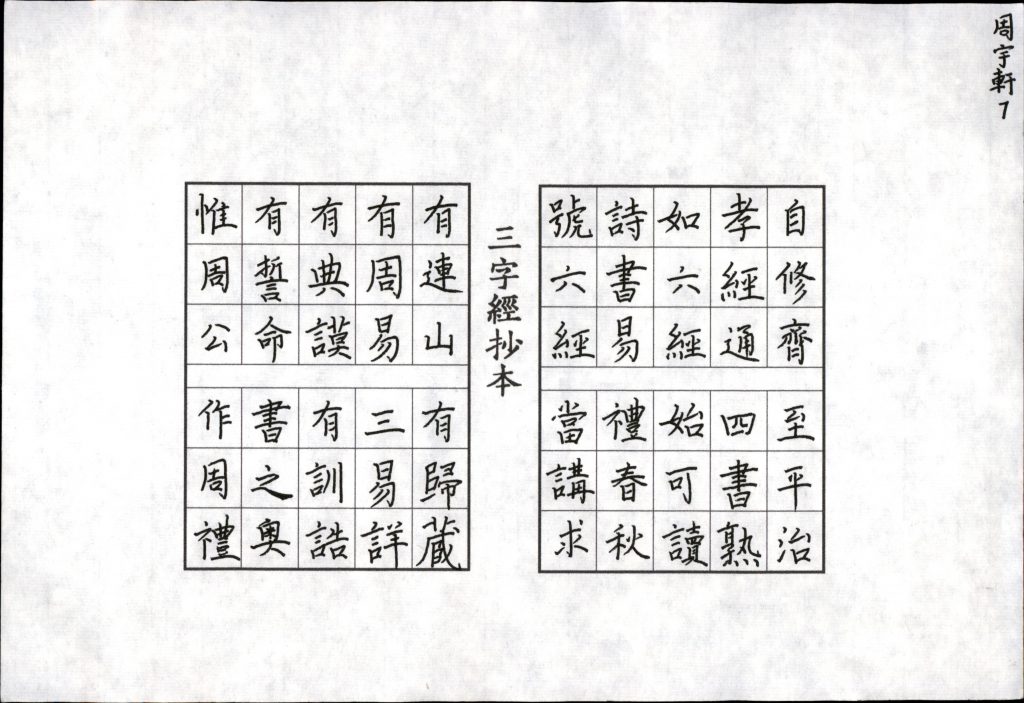 周宇軒 7
自修齊 至平治
孝經通 四書熟
如六經 始可讀
詩書易 禮春秋
號六經 當講求
三字經抄本
有連山 有歸藏
有周易 三易詳
有典謨 有訓誥
有誓命 書之奧
惟周公 作周禮